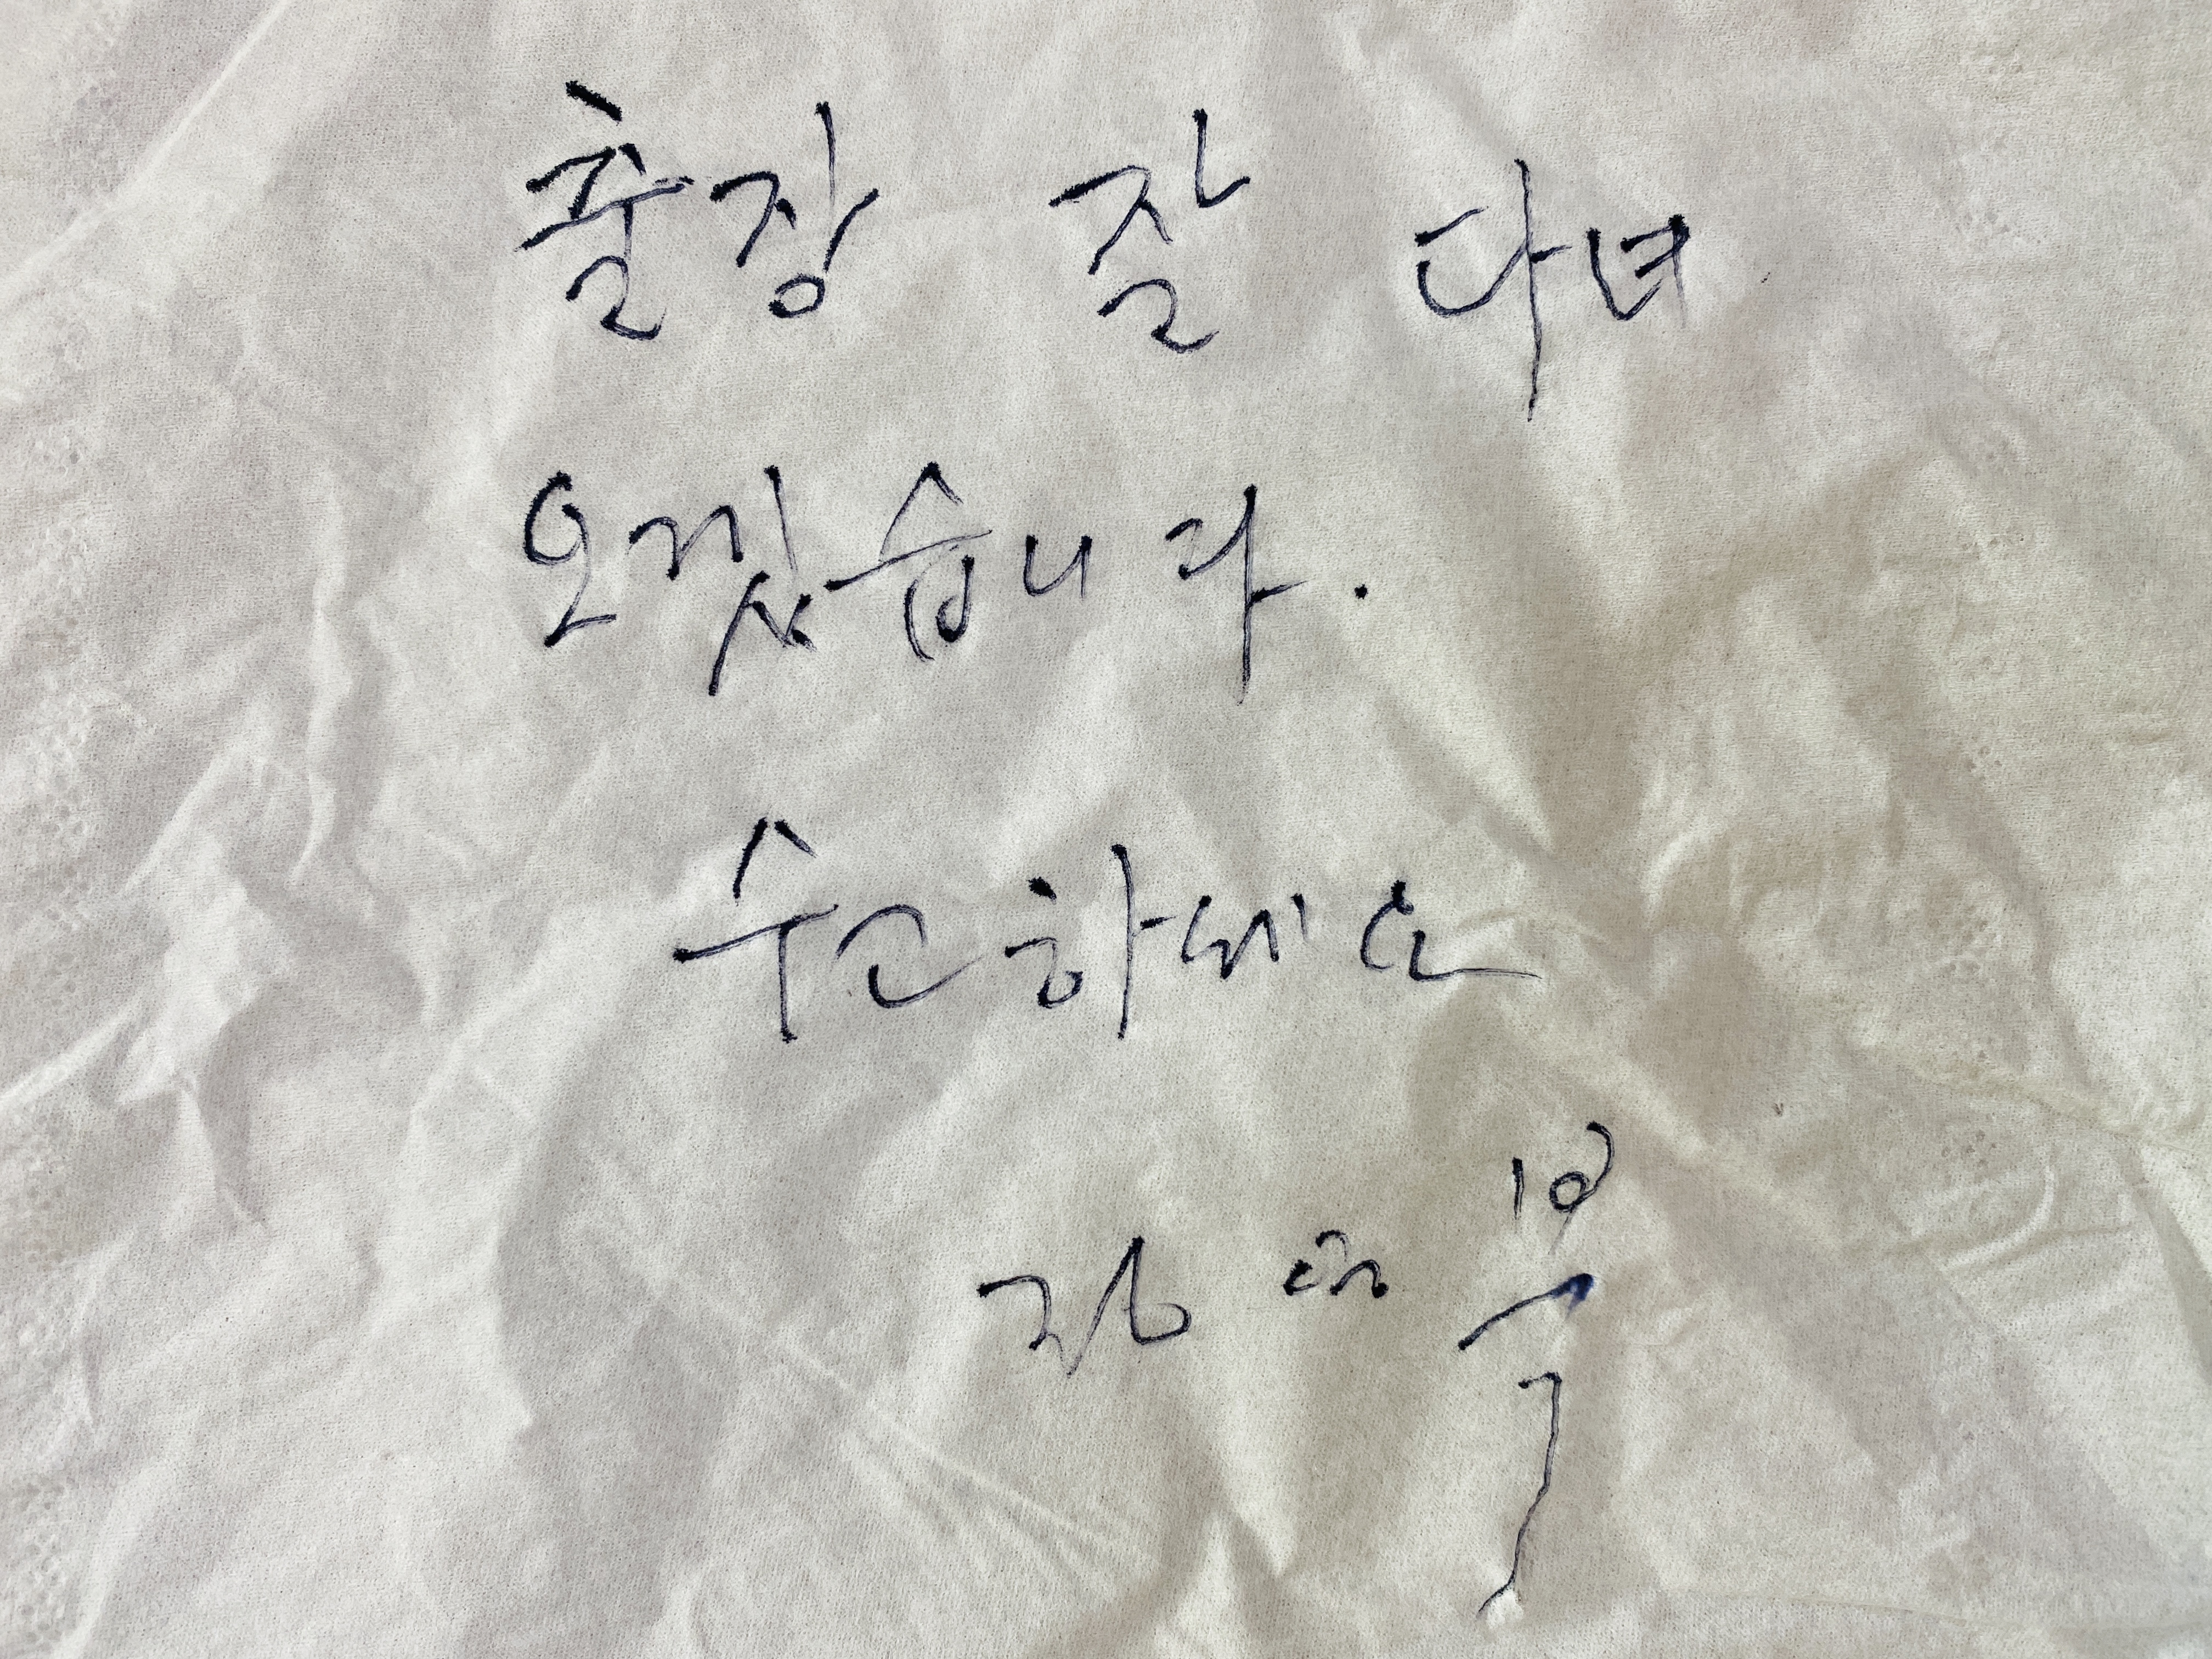 출장 잘 다녀
오겠습니다.
수고하세요